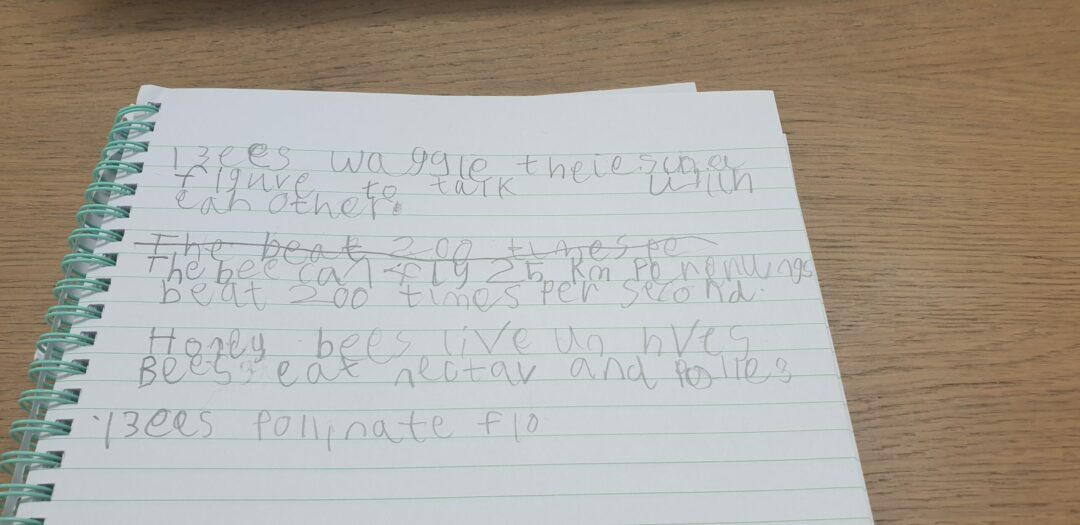 Bees waggle their
figure to talk with
eah other.
The beat 200 times pe
The bee can fly 25 km wings
beat 200 times per second.
Honey bees live un hves
Bees eat nectar and
Bees pollinate flo